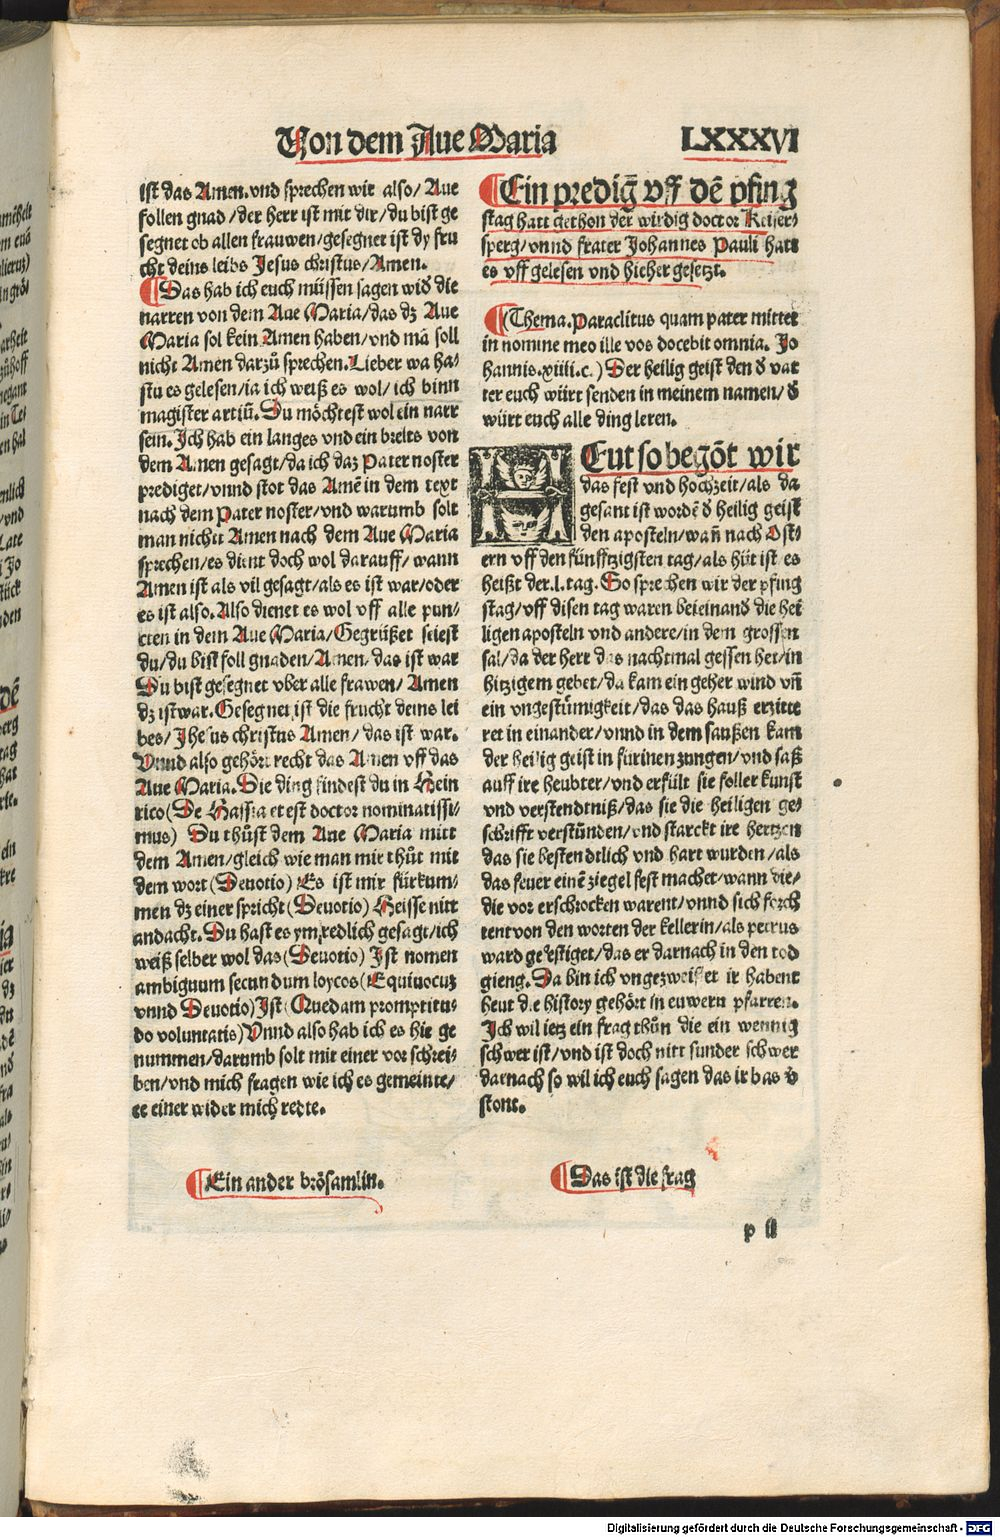 Von dem Aue Maria
LXXXVI
ist das Amen. vnd sprechen wir also/ Aue
follen gnad/der herr ist mit dir/du bist ge
segnet ob allen frauwen/gesegnet ist dy fru
cht deins leibs Jesus christus/Amen.
Das hab ich euch müssen sagen wid̄ die
narren von dem Aue Maria/das dz Aue
Maria sol kein Amen haben/vnd mā soll
nicht Amen darzů sprechen. Lieber wa ha⸗
stu es gelesen/ia ich weiß es wol/ich binn
magister artiū. Du möchtest wol ein narr
sein. Ich hab ein langes vnd ein breits von
dem Amen gesagt/da ich daz Pater noster
prediget/vnnd stot das Amē in dem text
nach dem Pater noster/vnd warumb solt
man nichtt Amen nach dem Aue Maria
sprechen/es dient doch wol darauff/wann
Amen ist als vil gesagt/als es ist war/oder
es ist also. Also dienet es wol vff alle pun⸗
cten in dem Aue Maria/Gegrüßet seiest
du/du bist foll gnaden/Amen/das ist war
Du bist gesegnet vber alle frawen/Amen
dz ist war. Gesegnet ist die frucht deins lei
bes/Jhesus christus Amen/das ist war.
Vnnd also gehört recht das Amen vff das
Aue Maria. Die ding findest du in Hein
rico (De Hassia et est doctor nominatissi⸗
mus) Du thůst dem Aue Maria mitt
dem Amen/gleich wie man mir thůt mit
dem wort (Deuotio) Es ist mir fürkum⸗
men dz einer spricht (Deuotio) Heisse nitt
andacht. Du hast es ym redlich gesagt/ich
weiß selber wol das (Deuotio) Ist nomen
ambiguum secundum loycos (Equiuocuz
vnnd Deuotio) Ist (Quedam promptitu⸗
do voluntatis) Vnnd also hab ich es hie ge
nummen/darumb solt mir einer vor schrei⸗
ben/vnd mich fragen wie ich es gemeinte/
ee einer wider mich redte.
Ein ander brösamlin.
Ein prediḡ vff dē pfing
stag hatt gethon der wirdig doctor Keiser⸗
sperg/vnnd frater Johannes Pauli hatt
es vff gelesen vnd hieher gesetzt.
(Thema. Paraclitus quam pater mittet
in nomine meo ille vos docebit omnia. Jo
hannis. xiiii. c.) Der heilig geist den d̄ vat
ter euch würt senden in meinem namen/d̄
würt euch alle ding leren.
HEut so begōt wir
das fest vnd hochzeit/als da
gesant ist wordē d̄ heilig geist
den aposteln/wañ nach Ost⸗
ern vff den fünfftzigsten tag/als hüt ist es
heißt der .l. tag. So sprechen wir der pfing
stag/vff disen tag waren beieinand̄ die hei
ligen aposteln vnd andere/in dem grossen
sal/da der herr das nachtmal gessen het/in
hitzigem gebet/da kam ein geher wind vñ
ein vngestümigkeit/das das hauß erzitte
ret in einander/vnnd in dem saußen kam
der heilig geist in fürinen zungen/vnd saß
auff ire heubter/vnd erfült sie foller kunst
vnd verstendtniß/das sie die heiligen ge⸗
schrifft verstünden/vnd starckt ire hertzen
das sie bestendtlich vnd hart wurden/als
das feuer einē ziegel fest machet/wann die/
die vor erschrocken warent/vnnd sich forch
tent von den worten der kellerin/als petrus
ward geuestiget/das er darnach in den tod
gieng. Da bin ich vngezweiflet ir habent
heut die history gehört in euwern pfarren.
Ich wil ietz ein frag thůn die ein wennig
schwer ist/vnd ist doch nitt sunder schwer
darnach so wil ich euch sagen das ir bas v̄
stont.
Das ist die frag
p ii
Digitalisierung gefördert durch die Deutsche Forschungsgemeinschaft - DFG